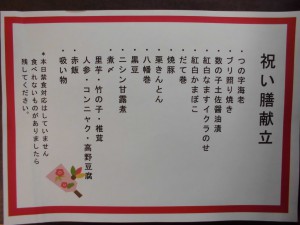 祝い膳献立
・つの字海老
・ブリ照り焼き
・数の子土佐醤油漬
・紅白なますイクラのせ
・紅白かまぼこ
・だて巻
・焼豚
・栗きんとん
・八幡巻
・黒豆
・ニシン甘露煮
・煮〆
里芋・竹の子・椎茸
人参・コンニャク・高野豆腐
・赤飯
・吸い物
＊本日禁食対応はしていません
食べれないものがありましたら
残してください。